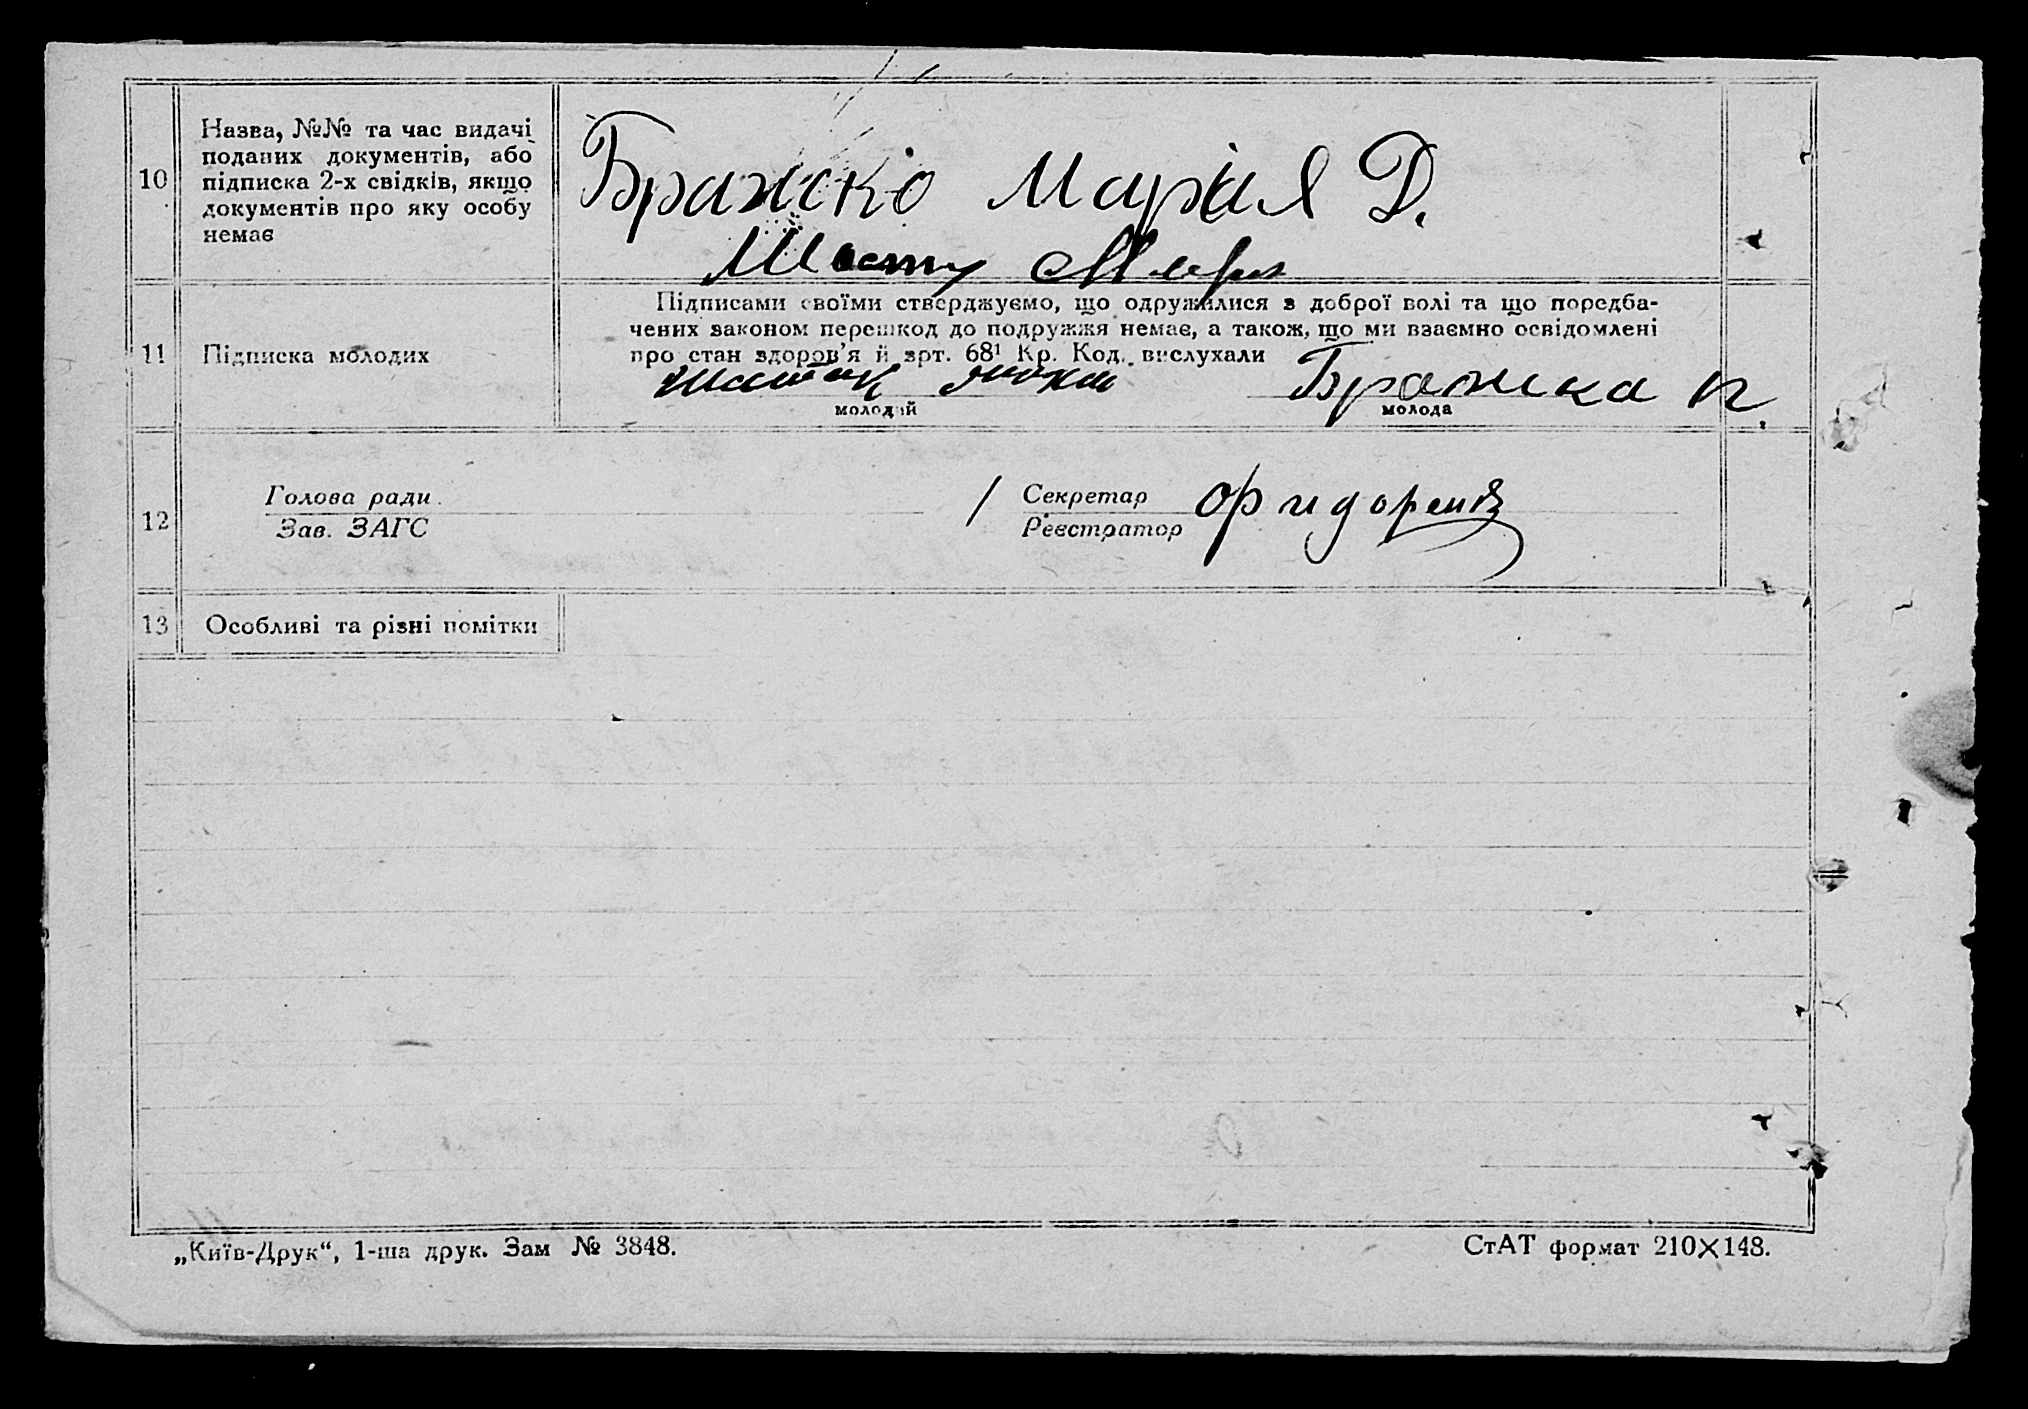 10
Назва, №№ та час видачі
поданих документів, або
підписка 2-х свідків, якщо
документів про яку особу
немає
Бражко Марія Д.
11
Підписка молодих
Підписами своїми стверджуємо, що одружилися з доброї волі та що передба-
чених законом перешкод до подружжя немає, а також, що ми взаємно освідомлені
про стан здоров'я й арт. 68¹ Кр. Код. вислухали
Бражка П.
молодий
молода
12
Голова ради
Зав. ЗАГС
Секретар
Реєстратор
13
Особливі та різні помітки
„Київ-Друк“, 1-ша друк. Зам № 3848.
СтАТ формат 210×148.